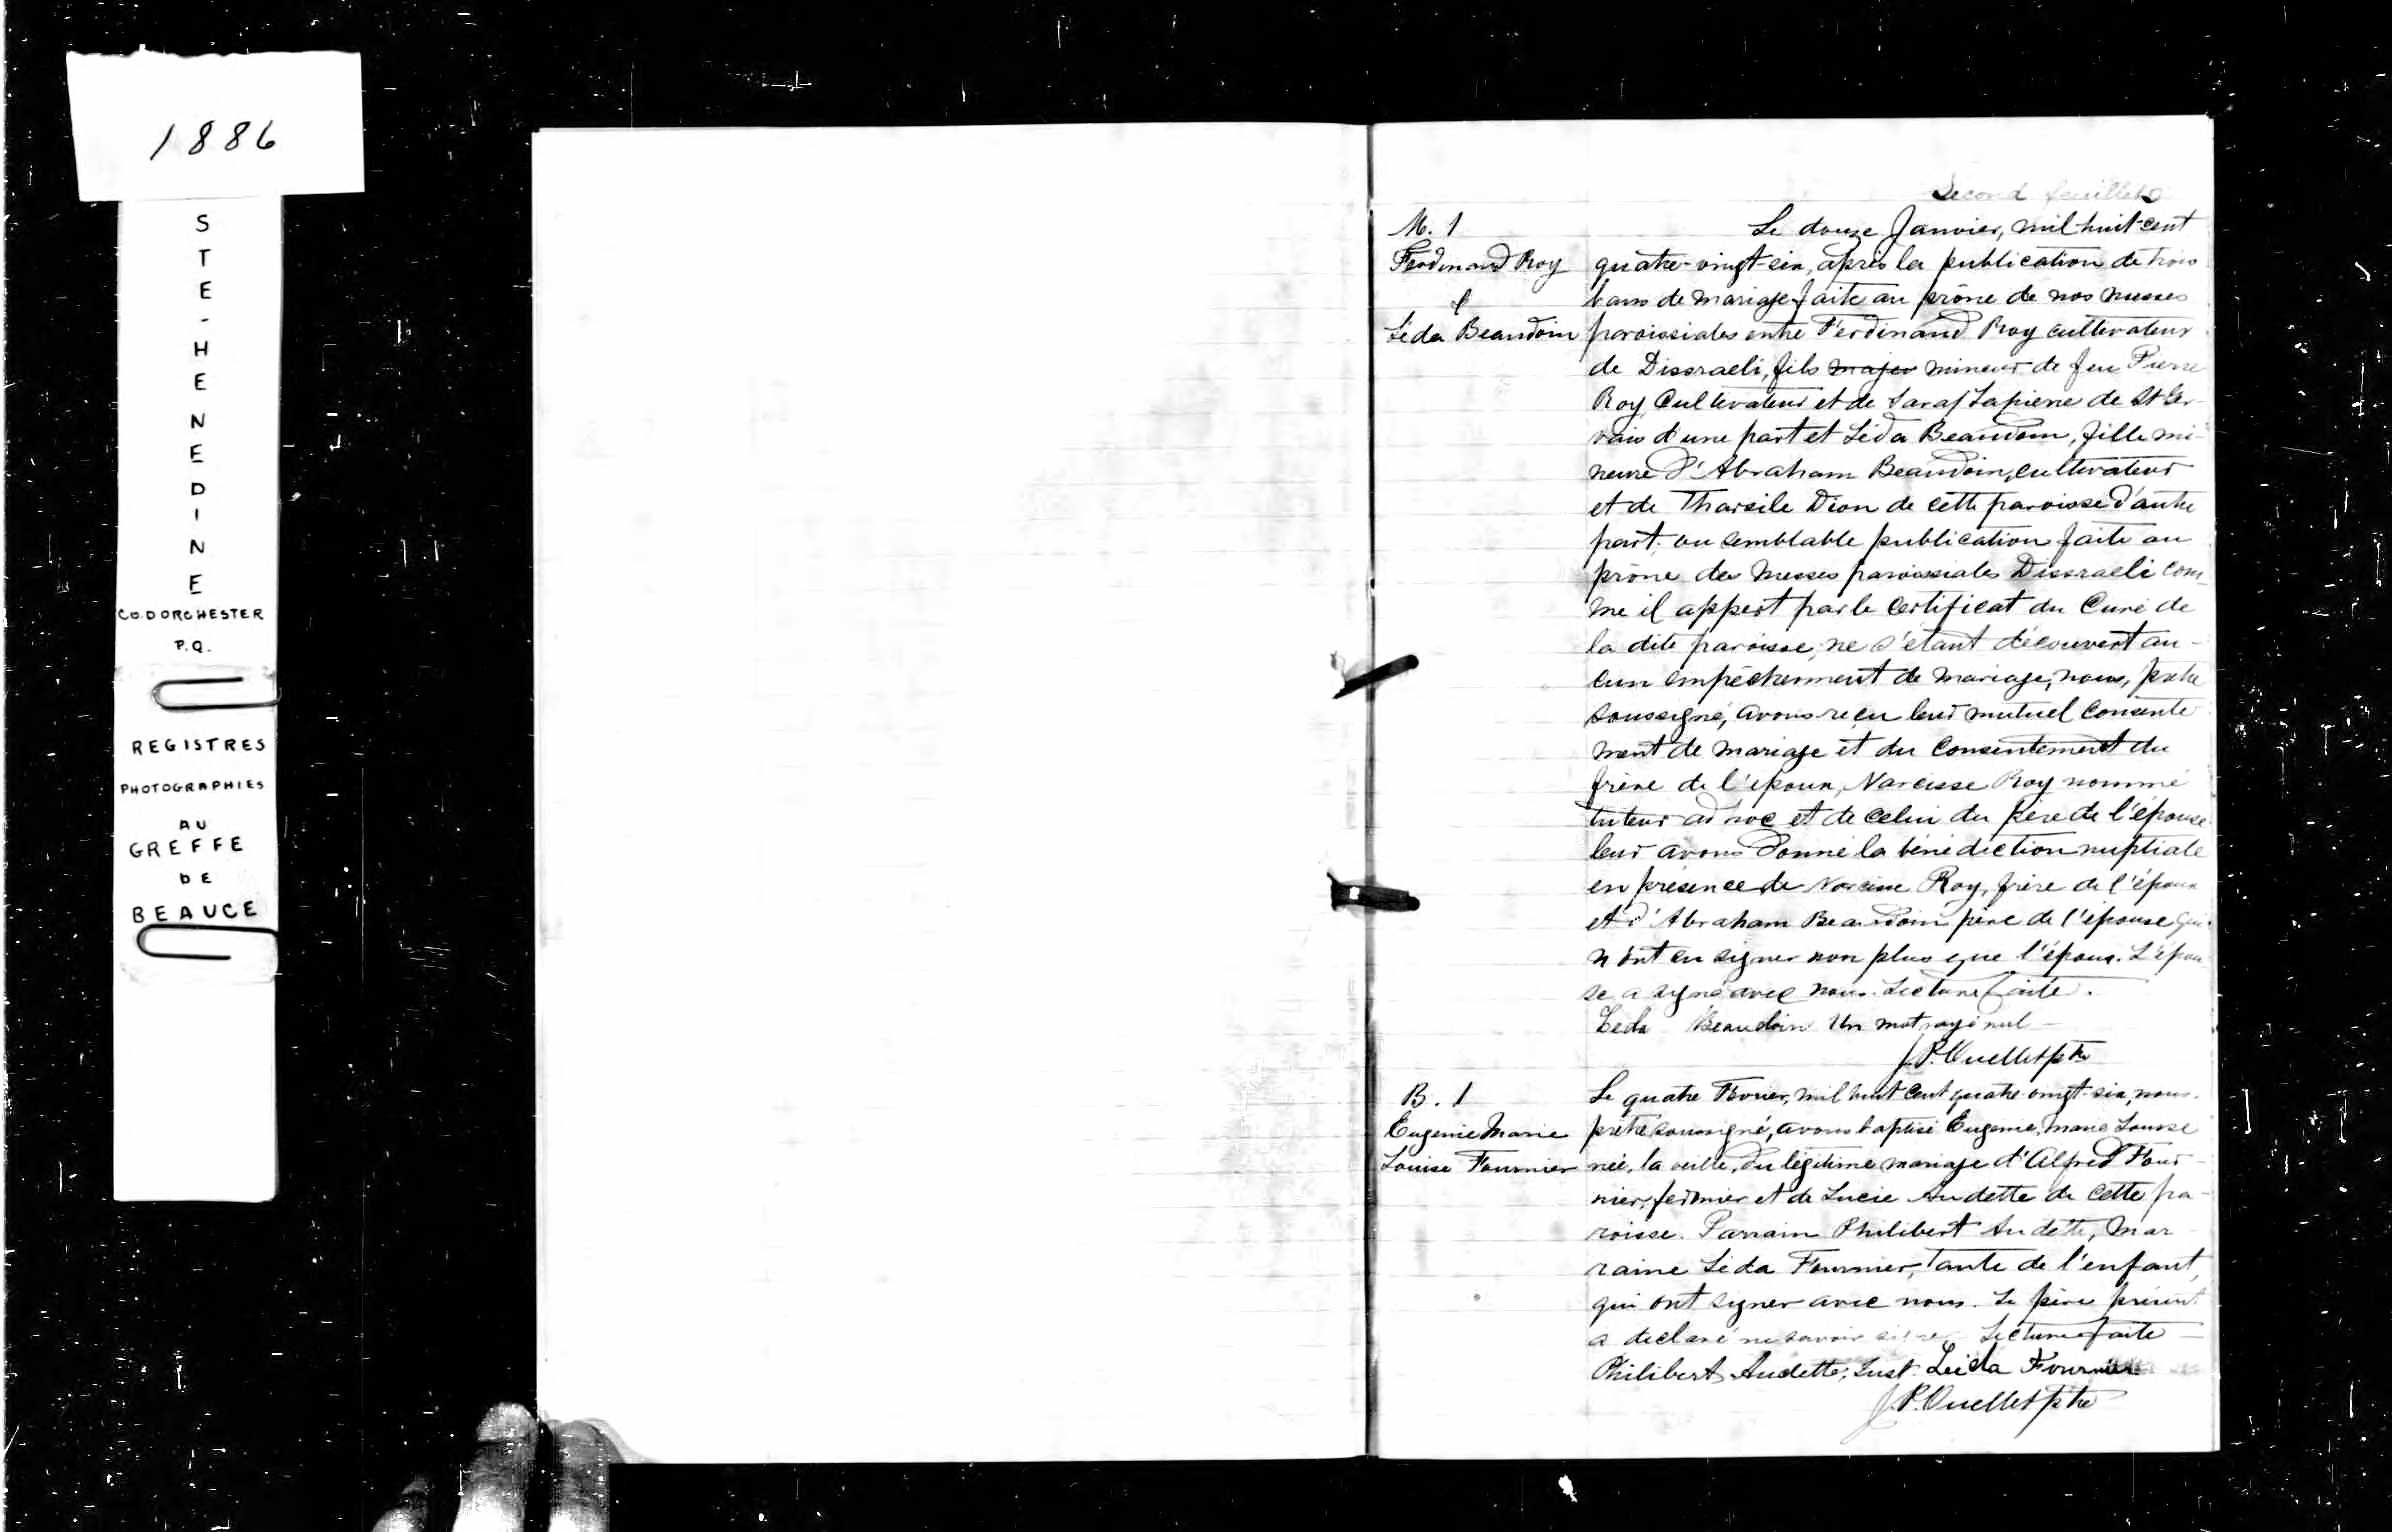 1886
STE-HENEDINE
CO. DORCHESTER
P.Q.
REGISTRES
PHOTOGRAPHIES
AU
GREFFE
DE
BEAUCE
Second feuillet
M. 1
Ferdinand Roy
&
Léda Beaudoin
Le douze Janvier, mil-huit-cent
quatre-vingt-six, après la publication de trois
bans de mariage faite au prône de nos messes
paroissiales entre Ferdinand Roy cultivateur
de Dissraeli, fils majeur mineur de feu Pierre
Roy Cultivateur et de Lapierre de St Ger-
vais d'une part et Léda Beaudoin, fille mi-
neure d'Abraham Beaudoin, cultivateur
et de Tharsile Dion de cette paroisse d'autre
part. vu semblable publication faite au
prône des Messes paroissiales Dissraeli com-
me il appert par le Certificat du Curé de
la dite paroisse, ne s'étant découvert au-
cun empêchemment de mariage, nous, prêtre
soussigné, avons reçu leur mutuel consente
ment de mariage et du Consentement du
frère de l'époux, Narcisse Roy nommé
tuteur ad hoc et de celui du père de l'épouse
leur avons donné la bénédiction nuptiale
en présence de Narcisse Roy, frère de l'époux
et d'Abraham Beaudoin père de l'épouse qui
n'ont su signer non plus que l'époux. L'épou
se a signé avec nous. Lecture faite.
Leda Beaudoin Un mot rayé nul
J.P. Ouellet ptre
B. 1
Eugenie Marie
Louise Fournier
Le quatre Fevrier, mil huit cent quatre vingt-six, nous
prêtre soussigné, avons baptisé Eugenie, Marie Louise
née, la veille, du légitime mariage d'Alfred Four-
nier, fermier et de Lucie Audette de cette pa-
roisse. Parrain Philibert Audette, mar
raine Léda Fournier, tante de l'enfant,
qui ont signer avec nous. Le père présent
a declaré ne savoir signer Lecture faite
Philibert Audette, Inst. Leida Fournier
J.P. Ouellet ptre